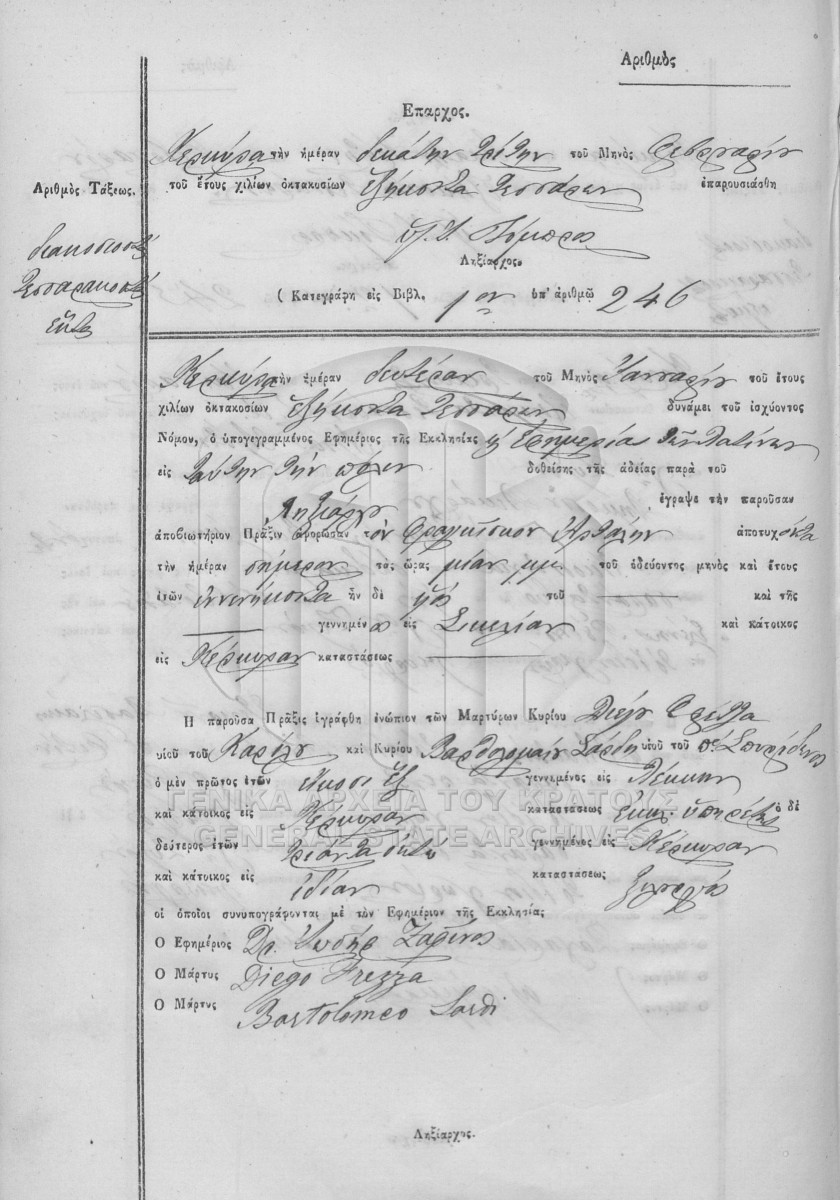 Αριθμὸς
Επαρχος.
Κερκύρα τὴν ἡμέραν δεκάτην τρίτην τοῦ Μηνὸς Φεβρουαρίου
Αριθμὸς Τάξεως.
τοῦ ἔτους χιλίων ὀκτακοσίων ἑξήκοντα τεσσάρων ἐπαρουσιάσθη
διακοσιοστὴ
τεσσαρακοστὴ
Ληξίαρχος.
( Κατεγράφη εἰς Βιβλ. 1ον ὑπ' ἀριθμῷ 246
Κερκύρα τὴν ἡμέραν δευτέραν τοῦ Μηνὸς Ιανουαρίου τοῦ ἔτους
χιλίων ὀκτακοσίων ἑξήκοντα τεσσάρων δυνάμει τοῦ ἰσχύοντος
Νόμου, ὁ ὑπογεγραμμένος Εφημέριος τῆς Εκκλησίας Εφημερίας τῶν Λατίνων
εἰς ταύτην τὴν πόλιν δοθείσης τῆς ἀδείας παρὰ τοῦ
Ληξιάρχου ἔγραψε τὴν παροῦσαν
ἀποβιωτήριον Πρᾶξιν ἀφορῶσαν τὸν Φραγκίσκον ἀποτυχόντα
τὴν ἡμέραν σήμερον τὰς ὥρας μίαν μμ. τοῦ ὁδεύοντος μηνὸς καὶ ἔτους
ἐτῶν ἐννενήκοντα ἦν δὲ υἱὸς τοῦ — καὶ τῆς
— γεννημένος εἰς Σικελίαν καὶ κάτοικος
εἰς Κέρκυραν καταστάσεως —
Η παροῦσα Πρᾶξις ἐγράφθη ἐνώπιον τῶν Μαρτύρων Κυρίου Διέγου Φρέζζα
υἱοῦ τοῦ Καρόλου καὶ Κυρίου Βαρθολομαίου Σάρδη υἱοῦ τοῦ Σπυρίδωνος
ὁ μὲν πρῶτος ἐτῶν εἴκοσι ἓξ γεννημένος εἰς Λέκκην
καὶ κάτοικος εἰς Κέρκυραν καταστάσεως ἐκκλ. ὑπηρέτης ὁ δὲ
δεύτερος ἐτῶν τριάντα ὀκτὼ γεννημένος εἰς Κέρκυραν
καὶ κάτοικος εἰς ἰδίαν καταστάσεως
οἱ ὁποῖοι συνυπογράφονται μὲ τὸν Εφημέριον τῆς Εκκλησίας
Ο Εφημέριος Δρ. Ἰωσὴφ
Ο Μάρτυς Diego Frezza
Ο Μάρτυς Bartolomeo Sardi
Ληξίαρχος.
ΓΕΝΙΚΑ ΑΡΧΕΙΑ ΤΟΥ ΚΡΑΤΟΥΣ
GENERAL STATE ARCHIVES